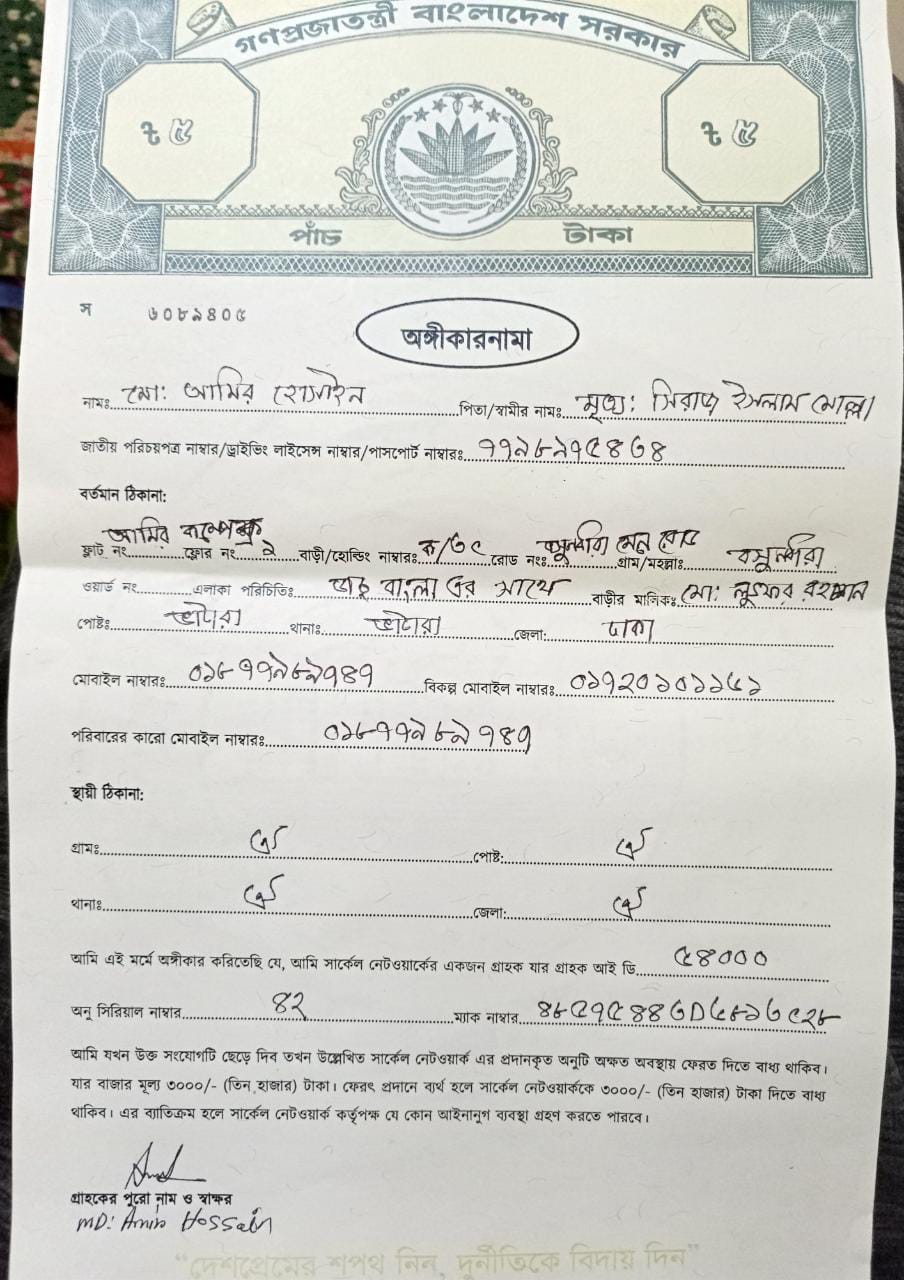 গণপ্রজাতন্ত্রী বাংলাদেশ সরকার
৳ ৫ ৳ ৫
পাঁচ টাকা
স ৬০৮৯৪০৫
অঙ্গীকারনামা
নামঃ মো: আমির হোসাইন পিতা/স্বামীর নামঃ মৃত্য: সিরাজ ইসলাম মোল্লা
জাতীয় পরিচয়পত্র নাম্বার/ড্রাইভিং লাইসেন্স নাম্বার/পাসপোর্ট নাম্বারঃ ৭৭৯৮৯৭৫৪৬৪
বর্তমান ঠিকানা:
আমির
ফ্লাট নং ফ্লোর নং ২ বাড়ী/হোল্ডিং নাম্বারঃ রোড নংঃ বসুন্ধরা মেন রোড গ্রাম/মহল্লাঃ বসুন্ধরা
ওয়ার্ড নং এলাকা পরিচিতিঃ বাংলা এর সাথে বাড়ীর মালিকঃ মো: লুৎফর রহমান
পোষ্টঃ ভাটারা থানাঃ ভাটারা জেলা: ঢাকা
মোবাইল নাম্বারঃ ০১৮৭৭৯৮৯৭৪৭ বিকল্প মোবাইল নাম্বারঃ
পরিবারের কারো মোবাইল নাম্বারঃ ০১৮৭৭৯৮৯৭৪৭
স্থায়ী ঠিকানা:
গ্রামঃ ঐ পোষ্ট: ঐ
থানাঃ ঐ জেলা: ঐ
আমি এই মর্মে অঙ্গীকার করিতেছি যে, আমি সার্কেল নেটওয়ার্কের একজন গ্রাহক যার গ্রাহক আই ডি ৫৪০০০
অনু সিরিয়াল নাম্বার ৪২ ম্যাক নাম্বার
আমি যখন উক্ত সংযোগটি ছেড়ে দিব তখন উল্লেখিত সার্কেল নেটওয়ার্ক এর প্রদানকৃত অনুটি অক্ষত অবস্থায় ফেরত দিতে বাধ্য থাকিব।
যার বাজার মূল্য ৩০০০/- (তিন হাজার) টাকা। ফেরৎ প্রদানে ব্যর্থ হলে সার্কেল নেটওয়ার্ককে ৩০০০/- (তিন হাজার) টাকা দিতে বাধ্য
থাকিব। এর ব্যাতিক্রম হলে সার্কেল নেটওয়ার্ক কর্তৃপক্ষ যে কোন আইনানুগ ব্যবস্থা গ্রহণ করতে পারবে।
গ্রাহকের পুরো নাম ও স্বাক্ষর
MD: Amir Hossain
"দেশপ্রেমের শপথ নিন, দুর্নীতিকে বিদায় দিন"